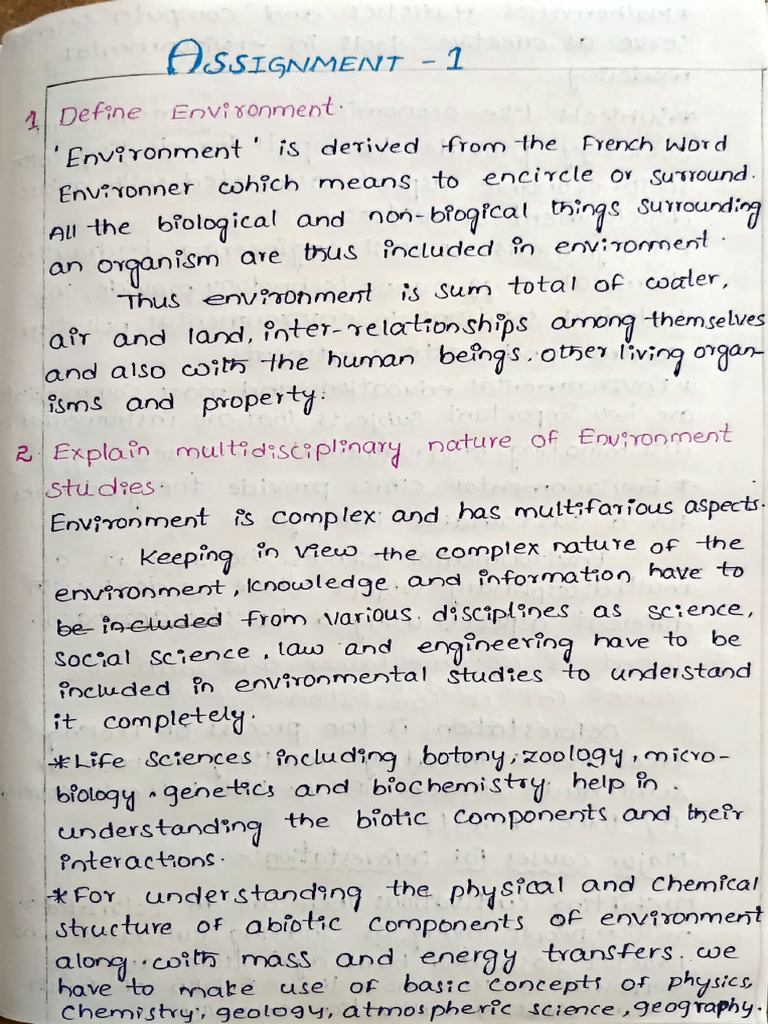 ASSIGNMENT - 1
1. Define Environment.
'Environment' is derived from the French Word
Environner which means to encircle or surround.
All the biological and non-biogical things surrounding
an organism are thus included in environment.
Thus environment is sum total of water,
air and land, inter-relationships among themselves
and also with the human beings, other living organ-
isms and property.
2. Explain multidisciplinary nature of Environment
studies.
Environment is complex and has multifarious aspects.
Keeping in view the complex nature of the
environment, knowledge and information have to
be included from various disciplines as science,
social science, law and engineering have to be
included in environmental studies to understand
it completely.
*Life sciences including botony, zoology, micro-
biology, genetics and biochemistry help in
understanding the biotic components and their
interactions.
*For understanding the physical and chemical
structure of abiotic components of environment
along with mass and energy transfers we
have to make use of basic concepts of physics,
chemistry, geology, atmospheric science, geography.